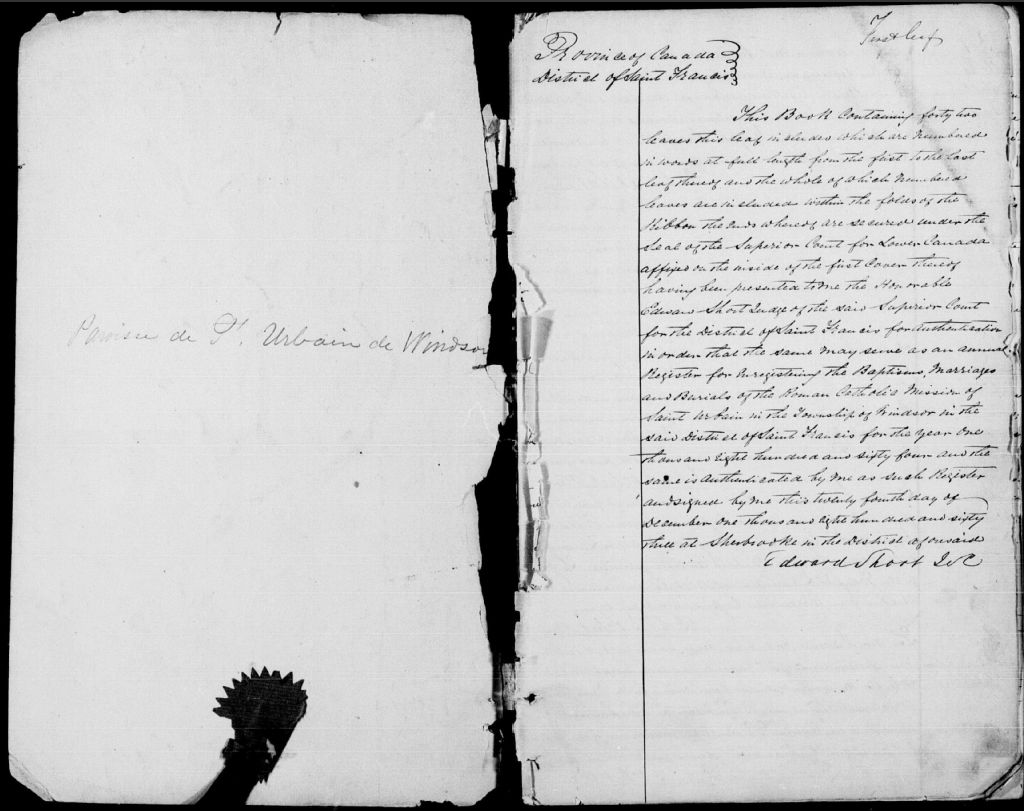 Paroisse de St Urbain de Windsor
First leaf
Province of Canada
District of Saint Francis
This Book Containing forty two
leaves this leaf included which are Numbered
in words at full length from the first to the last
leaf thereof and the whole of which Numbered
leaves are included within the folds of the
Ribbon the Ends whereof are secured under the
Seal of the Superior Court for Lower Canada
affixed on the inside of the first Cover thereof
having been presented to me the Honorable
Edward Short Judge of the said Superior Court
for the District of Saint Francis for authentication
in order that the same may serve as an annual
Register for Enregistering the Baptisms, Marriages
and Burials of the Roman Catholic Mission of
Saint Urbain in the Township of Windsor in the
said District of Saint Francis for the year One
thousand Eight hundred and sixty four and the
same is authenticated by me as such Register
and signed by me this twenty fourth day of
December One thousand Eight hundred and sixty
three at Sherbrooke in the District aforesaid
Edward Short